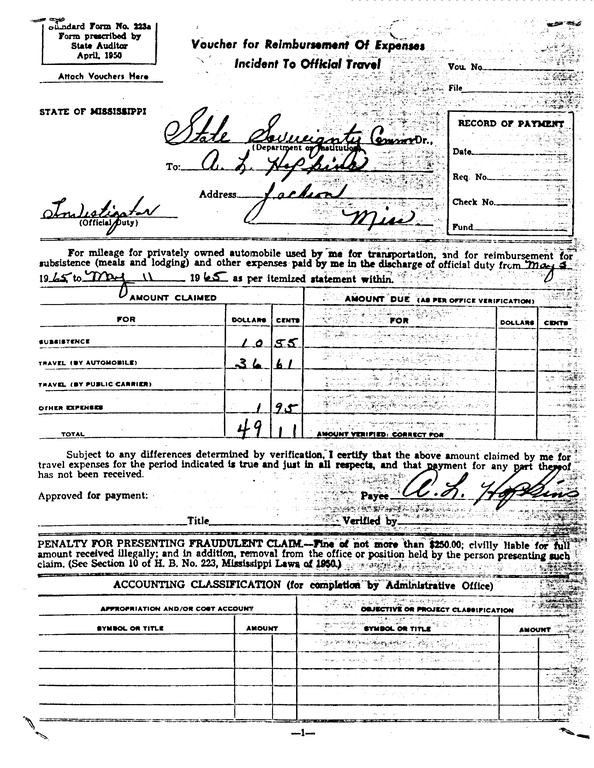 Standard Form No. 223a
Form prescribed by
State Auditor
April, 1950
Attach Vouchers Here
Voucher for Reimbursement Of Expenses
Incident To Official Travel
Vou. No.
File
STATE OF MISSISSIPPI
State Sovereignty Comm Dr.,
(Department or Institution)
To: A. L. Hopkins
Address Jackson
Miss
Investigator
(Official Duty)
RECORD OF PAYMENT
Date
Req. No.
Check No.
Fund
For mileage for privately owned automobile used by me for transportation, and for reimbursement for
subsistence (meals and lodging) and other expenses paid by me in the discharge of official duty from May
1965 to May 11 1965 as per itemized statement within.
AMOUNT CLAIMED AMOUNT DUE (AS PER OFFICE VERIFICATION)
FOR DOLLARS CENTS FOR DOLLARS CENTS
SUBSISTENCE 10 55
TRAVEL (BY AUTOMOBILE) 36 61
TRAVEL (BY PUBLIC CARRIER)
OTHER EXPENSES 1 95
TOTAL 49 11 AMOUNT VERIFIED: CORRECT FOR
Subject to any differences determined by verification, I certify that the above amount claimed by me for
travel expenses for the period indicated is true and just in all respects, and that payment for any part thereof
has not been received.
Approved for payment: Payee A. L. Hopkins
Title Verified by
PENALTY FOR PRESENTING FRAUDULENT CLAIM.—Fine of not more than $250.00; civilly liable for full
amount received illegally; and in addition, removal from the office or position held by the person presenting such
claim. (See Section 10 of H. B. No. 223, Mississippi Laws of 1950.)
ACCOUNTING CLASSIFICATION (for completion by Administrative Office)
APPROPRIATION AND/OR COST ACCOUNT OBJECTIVE OR PROJECT CLASSIFICATION
SYMBOL OR TITLE AMOUNT SYMBOL OR TITLE AMOUNT
—1—